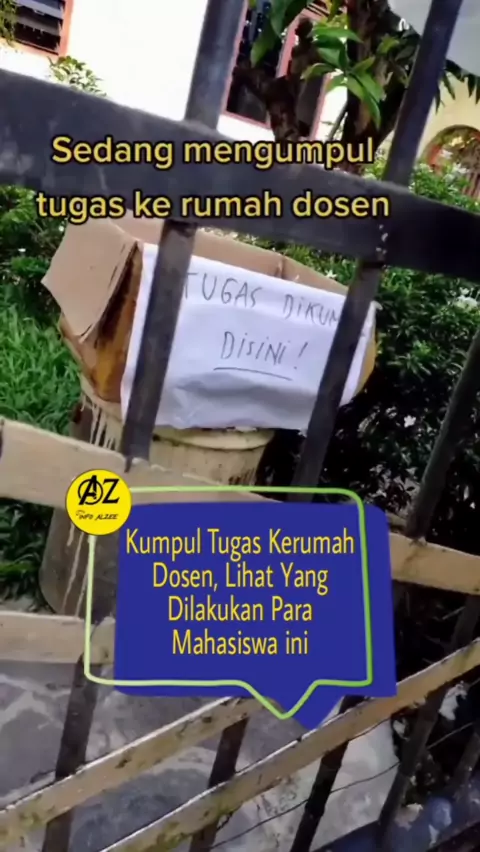 Sedang mengumpul
tugas ke rumah dosen
TUGAS DIKUM
DISINI!
AZ
INFO ALZEE
Kumpul Tugas Kerumah
Dosen, Lihat Yang
Dilakukan Para
Mahasiswa ini